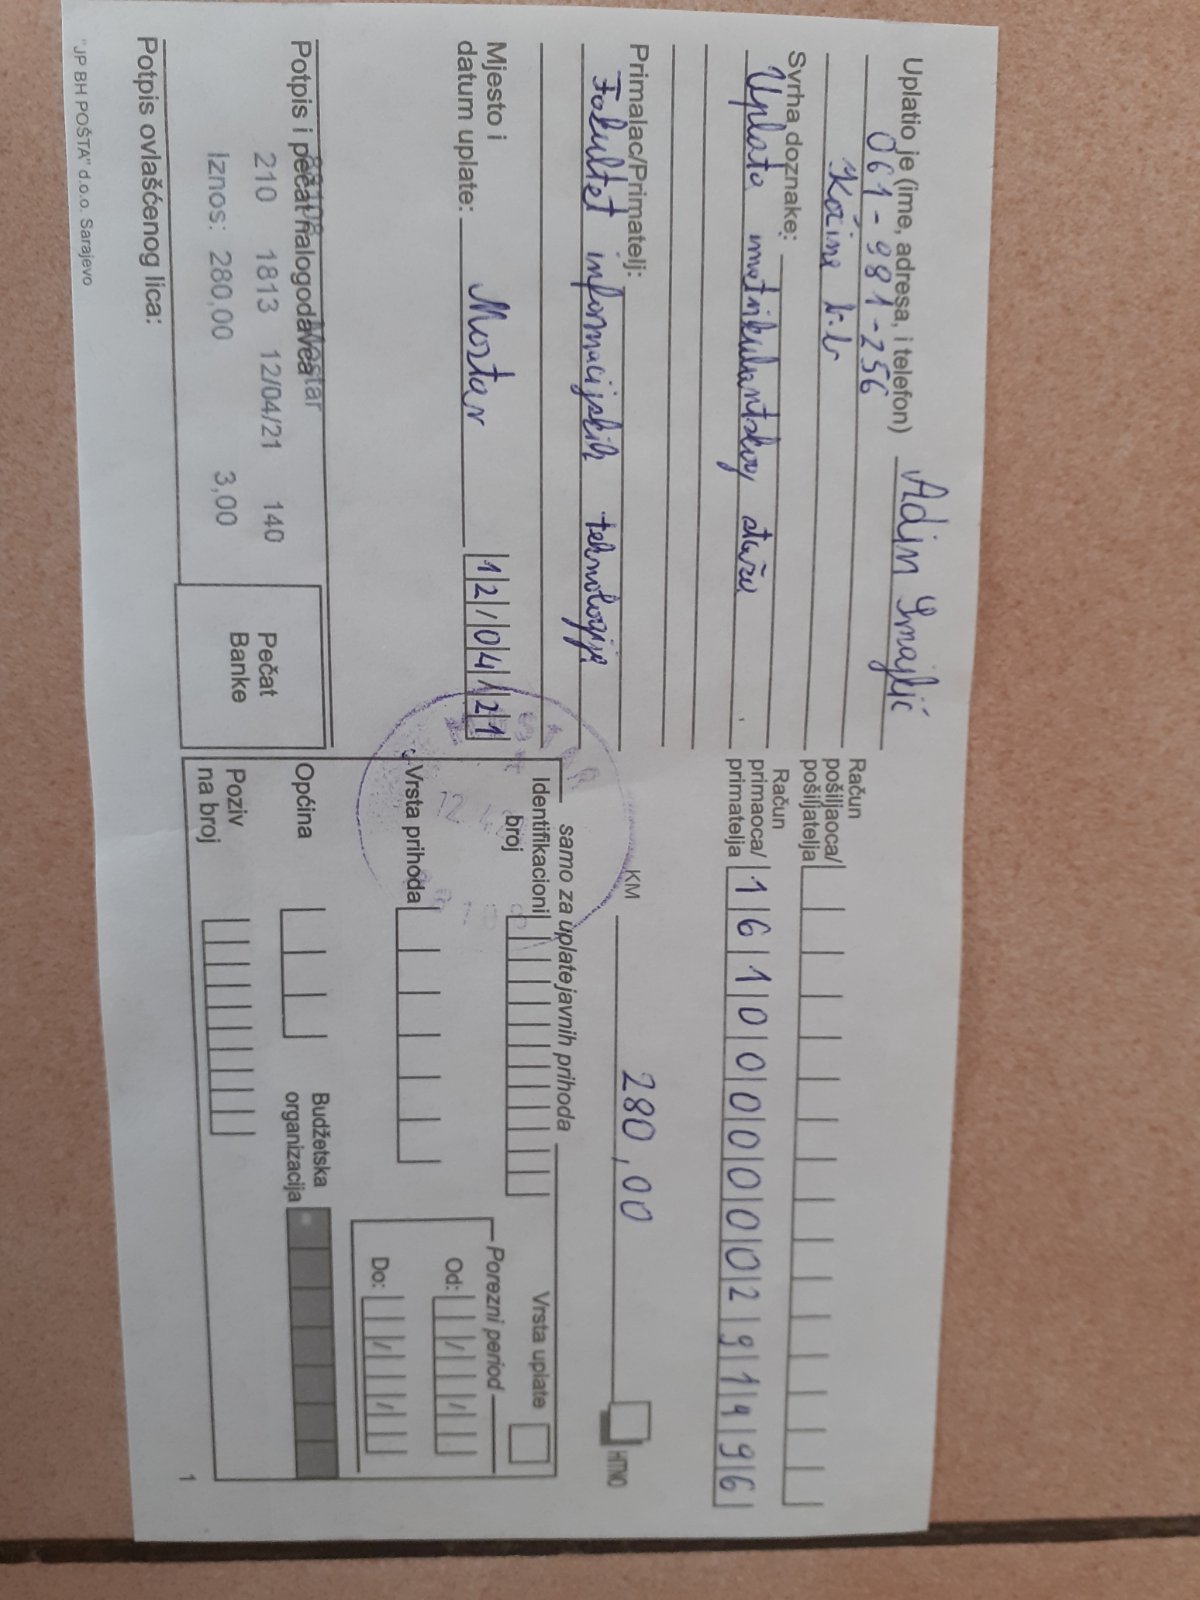 Uplatio je (ime, adresa, i telefon) Adin Smajkić
061-981-256
Kočine b.b
Svrha doznake:
Uplata imatrikulantskog staža
Primalac/Primatelj:
Fakultet informacijskih tehnologija
Mjesto i
datum uplate: Mostar 12/04/21
Potpis i pečat nalogodavca
Mostar
210 1813 12/04/21 140
Iznos: 280,00 3,00
Pečat
Banke
Potpis ovlašćenog lica:
"JP BH POŠTA" d.o.o. Sarajevo
Račun
pošiljaoca/
pošiljatelja
Račun
primaoca/
primatelja 1610000002919496
KM 280,00 HITNO
samo za uplate javnih prihoda
Identifikacioni
broj
Vrsta uplate
Vrsta prihoda
Porezni period
Od: / /
Do: / /
Općina
Budžetska
organizacija
Poziv
na broj
1